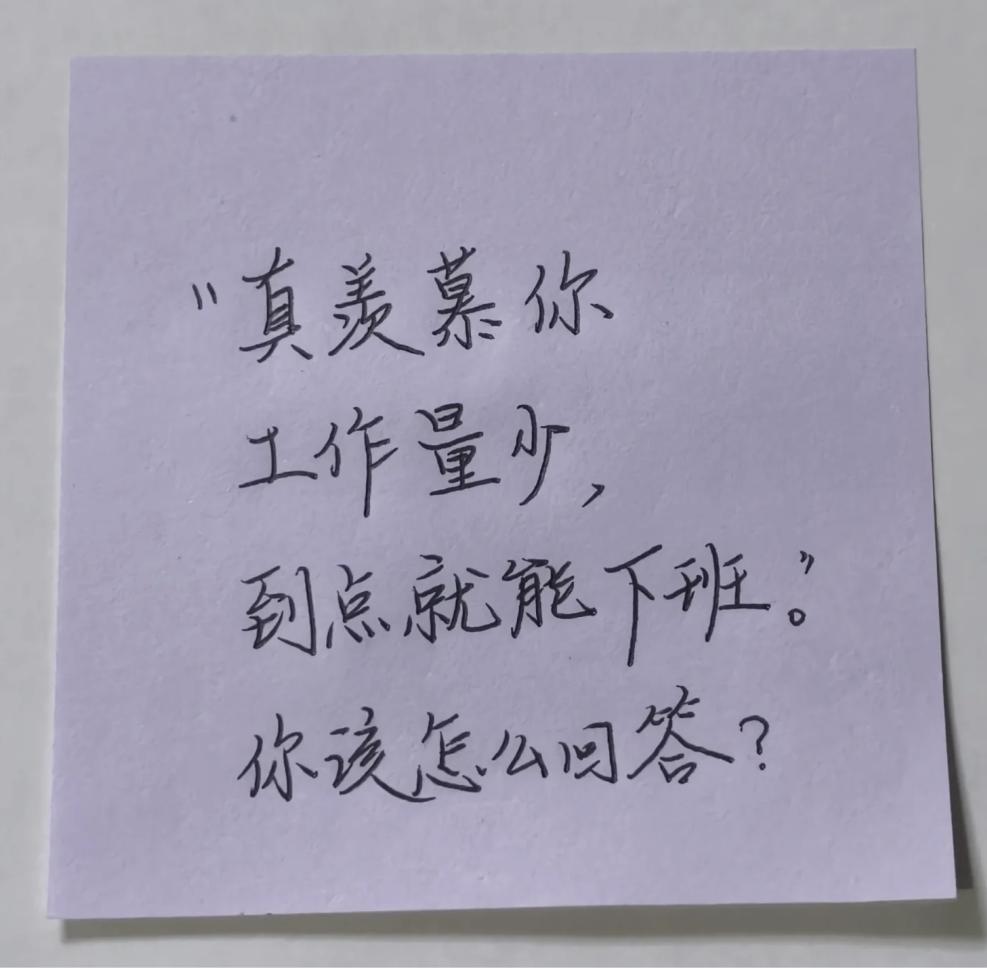 “真羡慕你
工作量少，
到点就能下班。”
你该怎么回答？